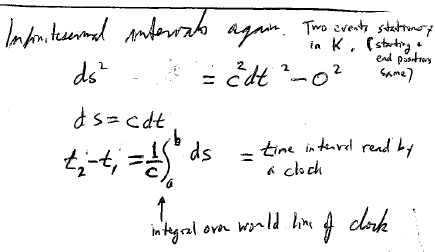 Infinitesimal intervals again. Two events stationary
in K, (starting +
end positions
same)
ds² = c²dt² - 0²
ds = cdt
t₂-t₁ = 1/c ∫ₐᵇ ds = time interval read by
a clock
integral over world line of clock